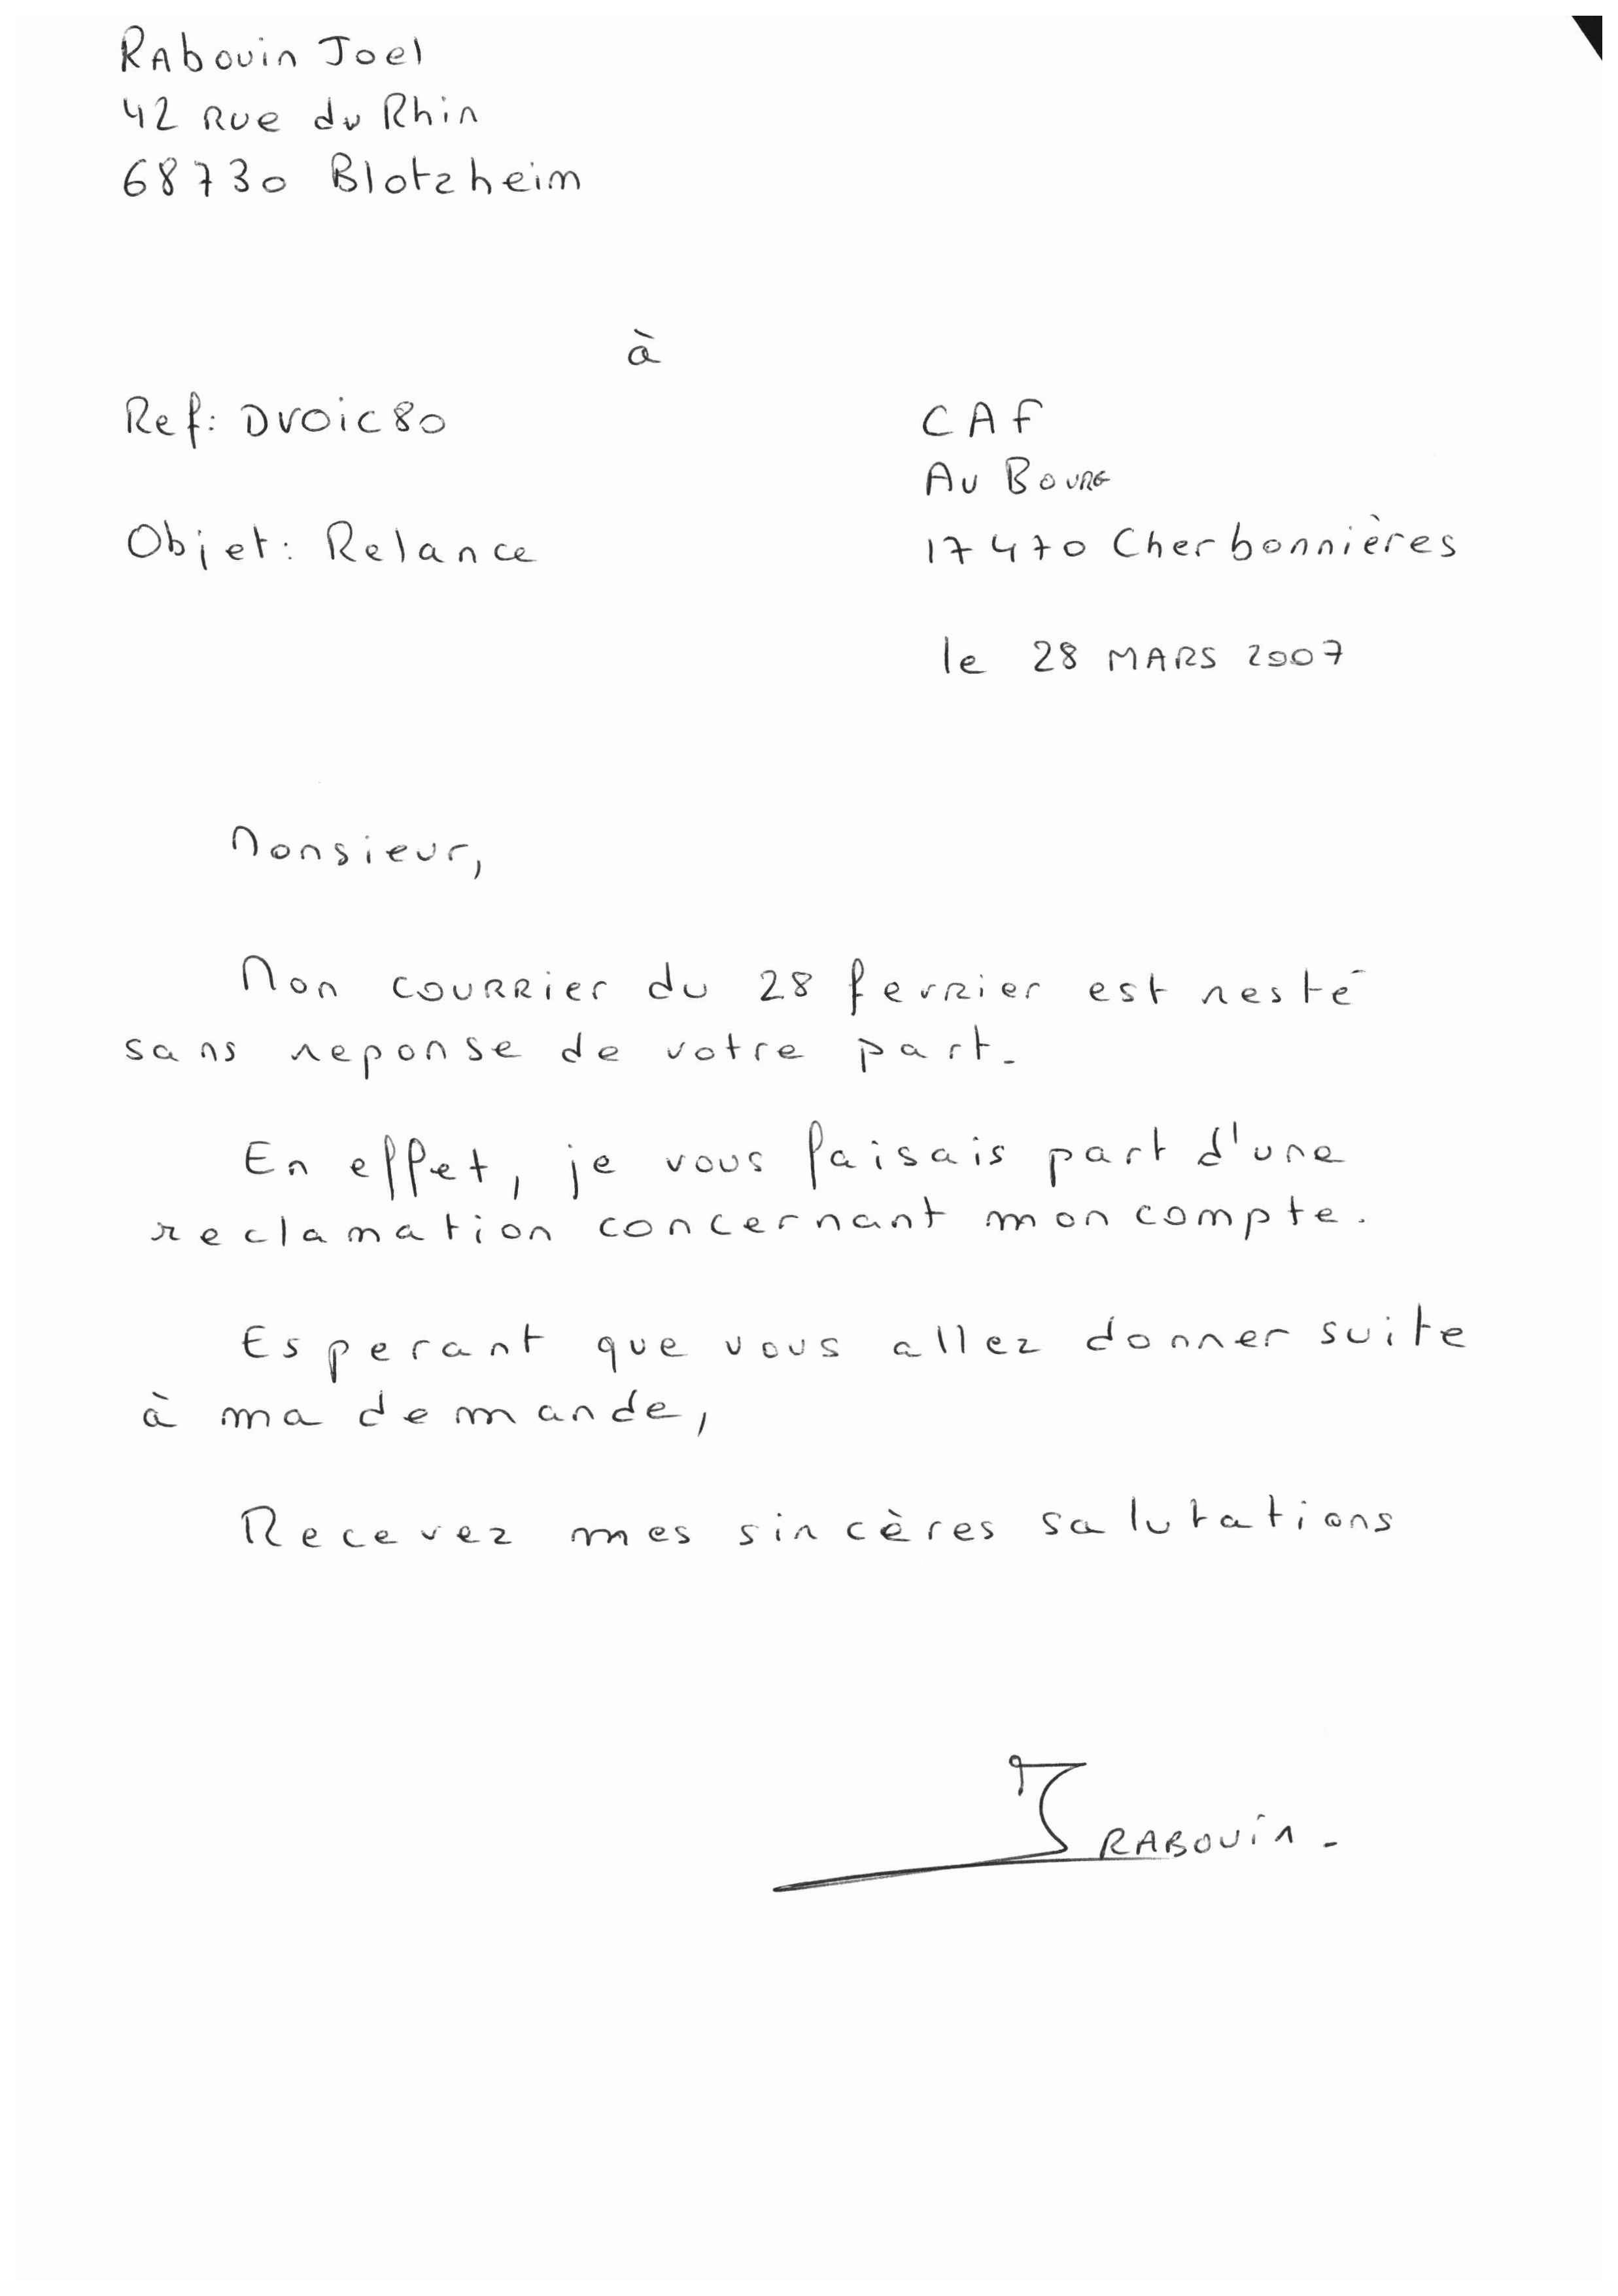 Rabouin Joel
42 Rue du Rhin
68730 Blotzheim
à
Ref: DVOIC80
CAF
Au Bourg
Objet: Relance
17470 Cherbonnières
le 28 MARS 2007
Monsieur,
Mon courrier du 28 fevrier est resté
sans reponse de votre part.
En effet, je vous faisais part d'une
reclamation concernant mon compte.
Esperant que vous allez donner suite
à ma demande,
Recevez mes sincères salutations
J RABOUIN.